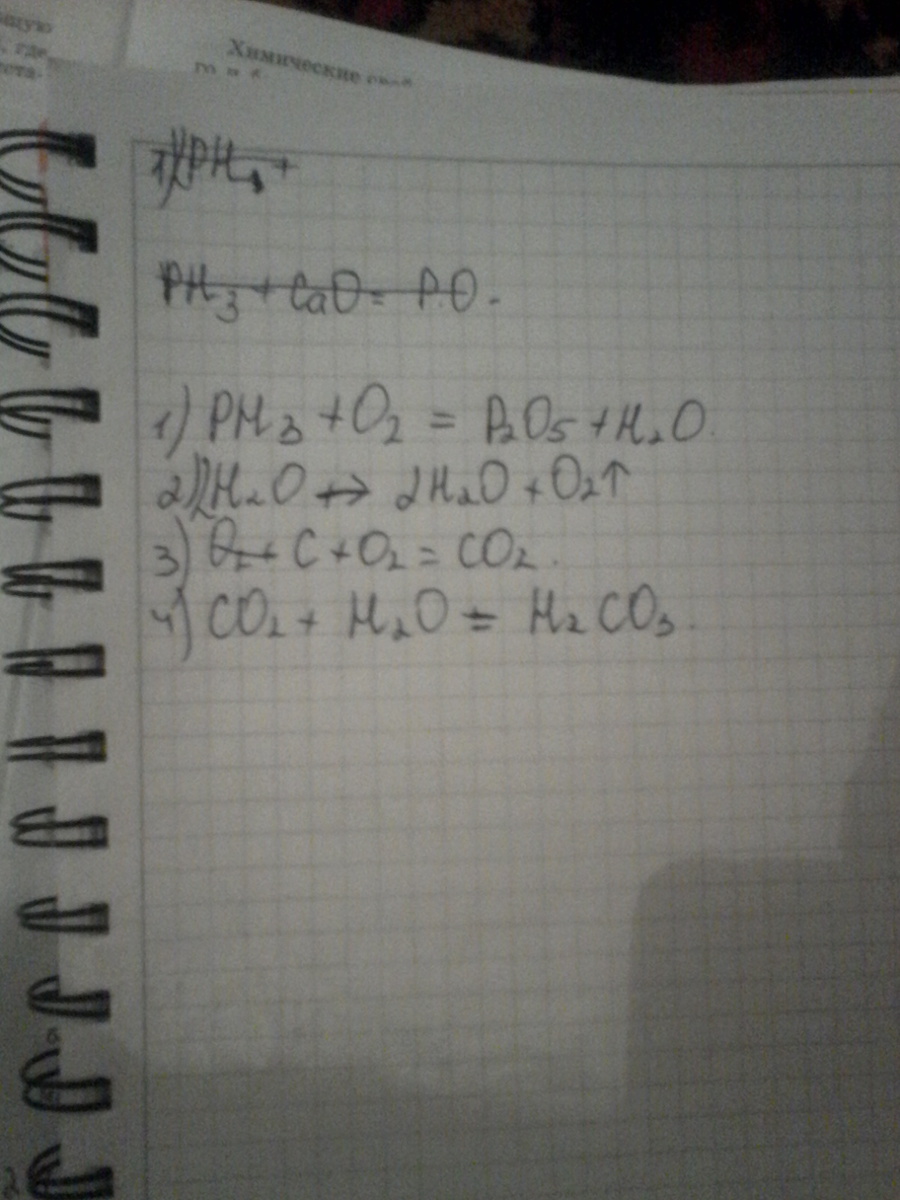 щую
, где
Химические
1) PH₃ +
PH₃ + CaO = P.O.
1) PH₃ + O₂ = P₂O₅ + H₂O.
2) 2H₂O ↔ 2H₂O + O₂↑
3) O₂ + C + O₂ = CO₂.
4) CO₂ + H₂O = H₂CO₃.